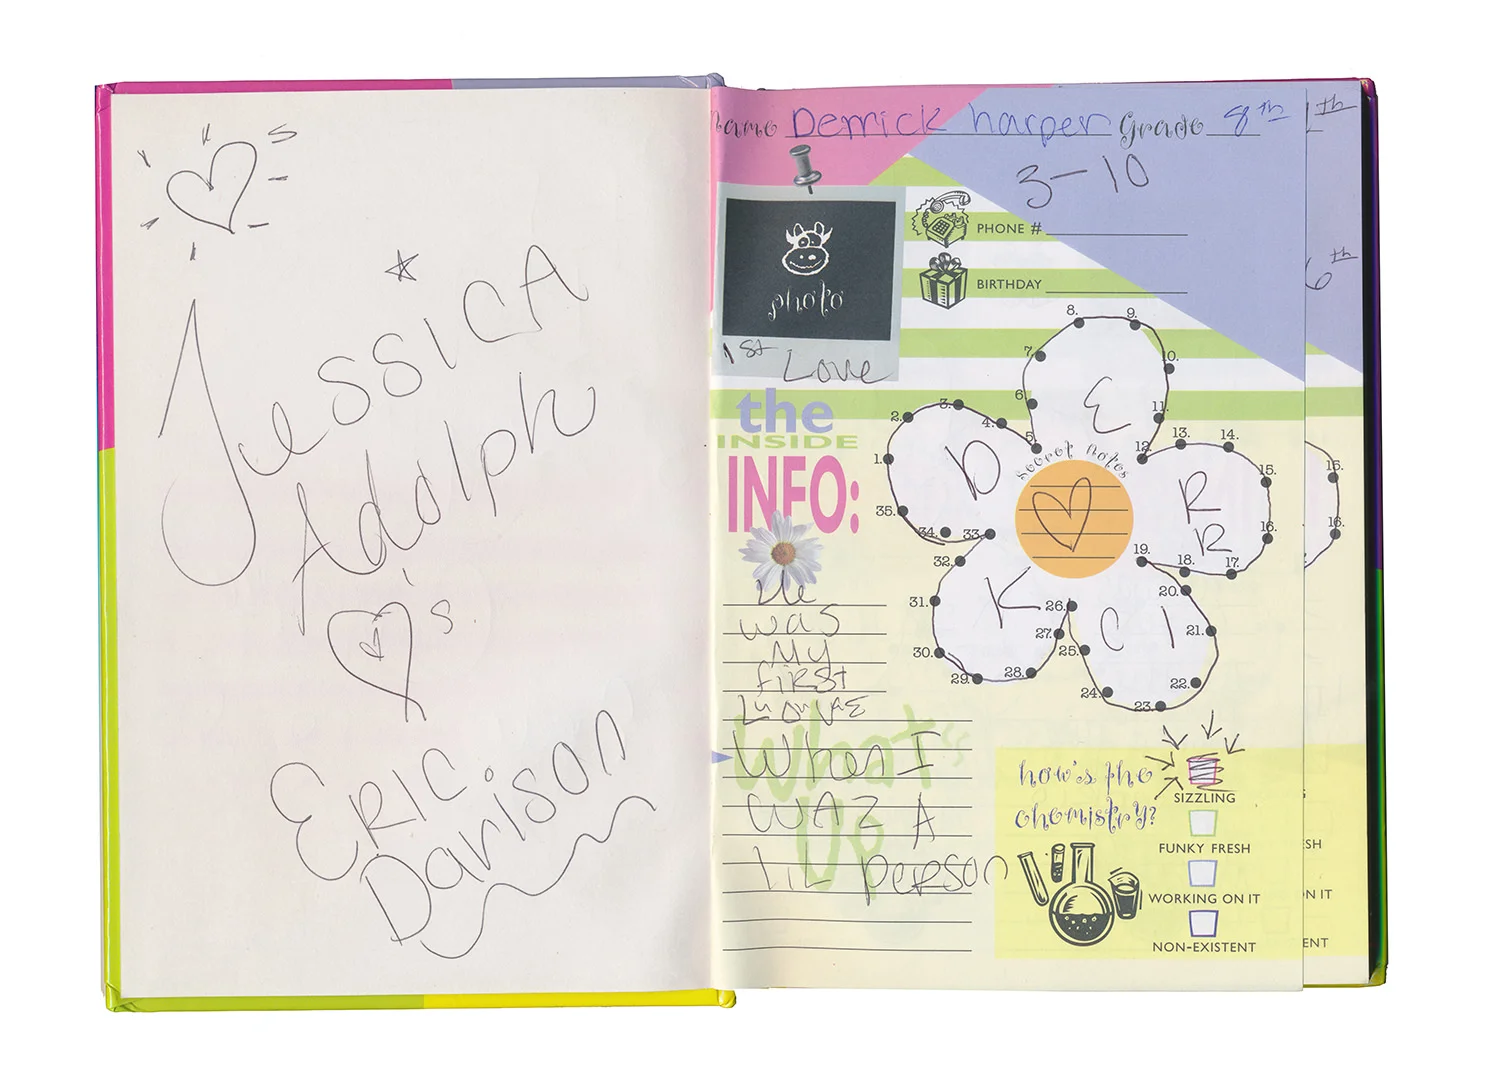 's
JESSICA
Adolph
's
ERIC
Darison
name Derrick harper Grade 8th
3-10
PHONE #
BIRTHDAY
photo
1st Love
the
INSIDE
INFO:
He
was
My
first
When I
WAZ A
lil person
What's
Up
secret notes
D
E
R
R
I
C
K
1.
2.
3.
4.
5.
6.
7.
8.
9.
10.
11.
12.
13.
14.
15.
16.
17.
18.
19.
20.
21.
22.
23.
24.
25.
26.
27.
28.
29.
30.
31.
32.
33.
34.
35.
how's the
chemistry?
SIZZLING
FUNKY FRESH
WORKING ON IT
NON-EXISTENT
th
6th
15.
16.
ESH
ON IT
ENT